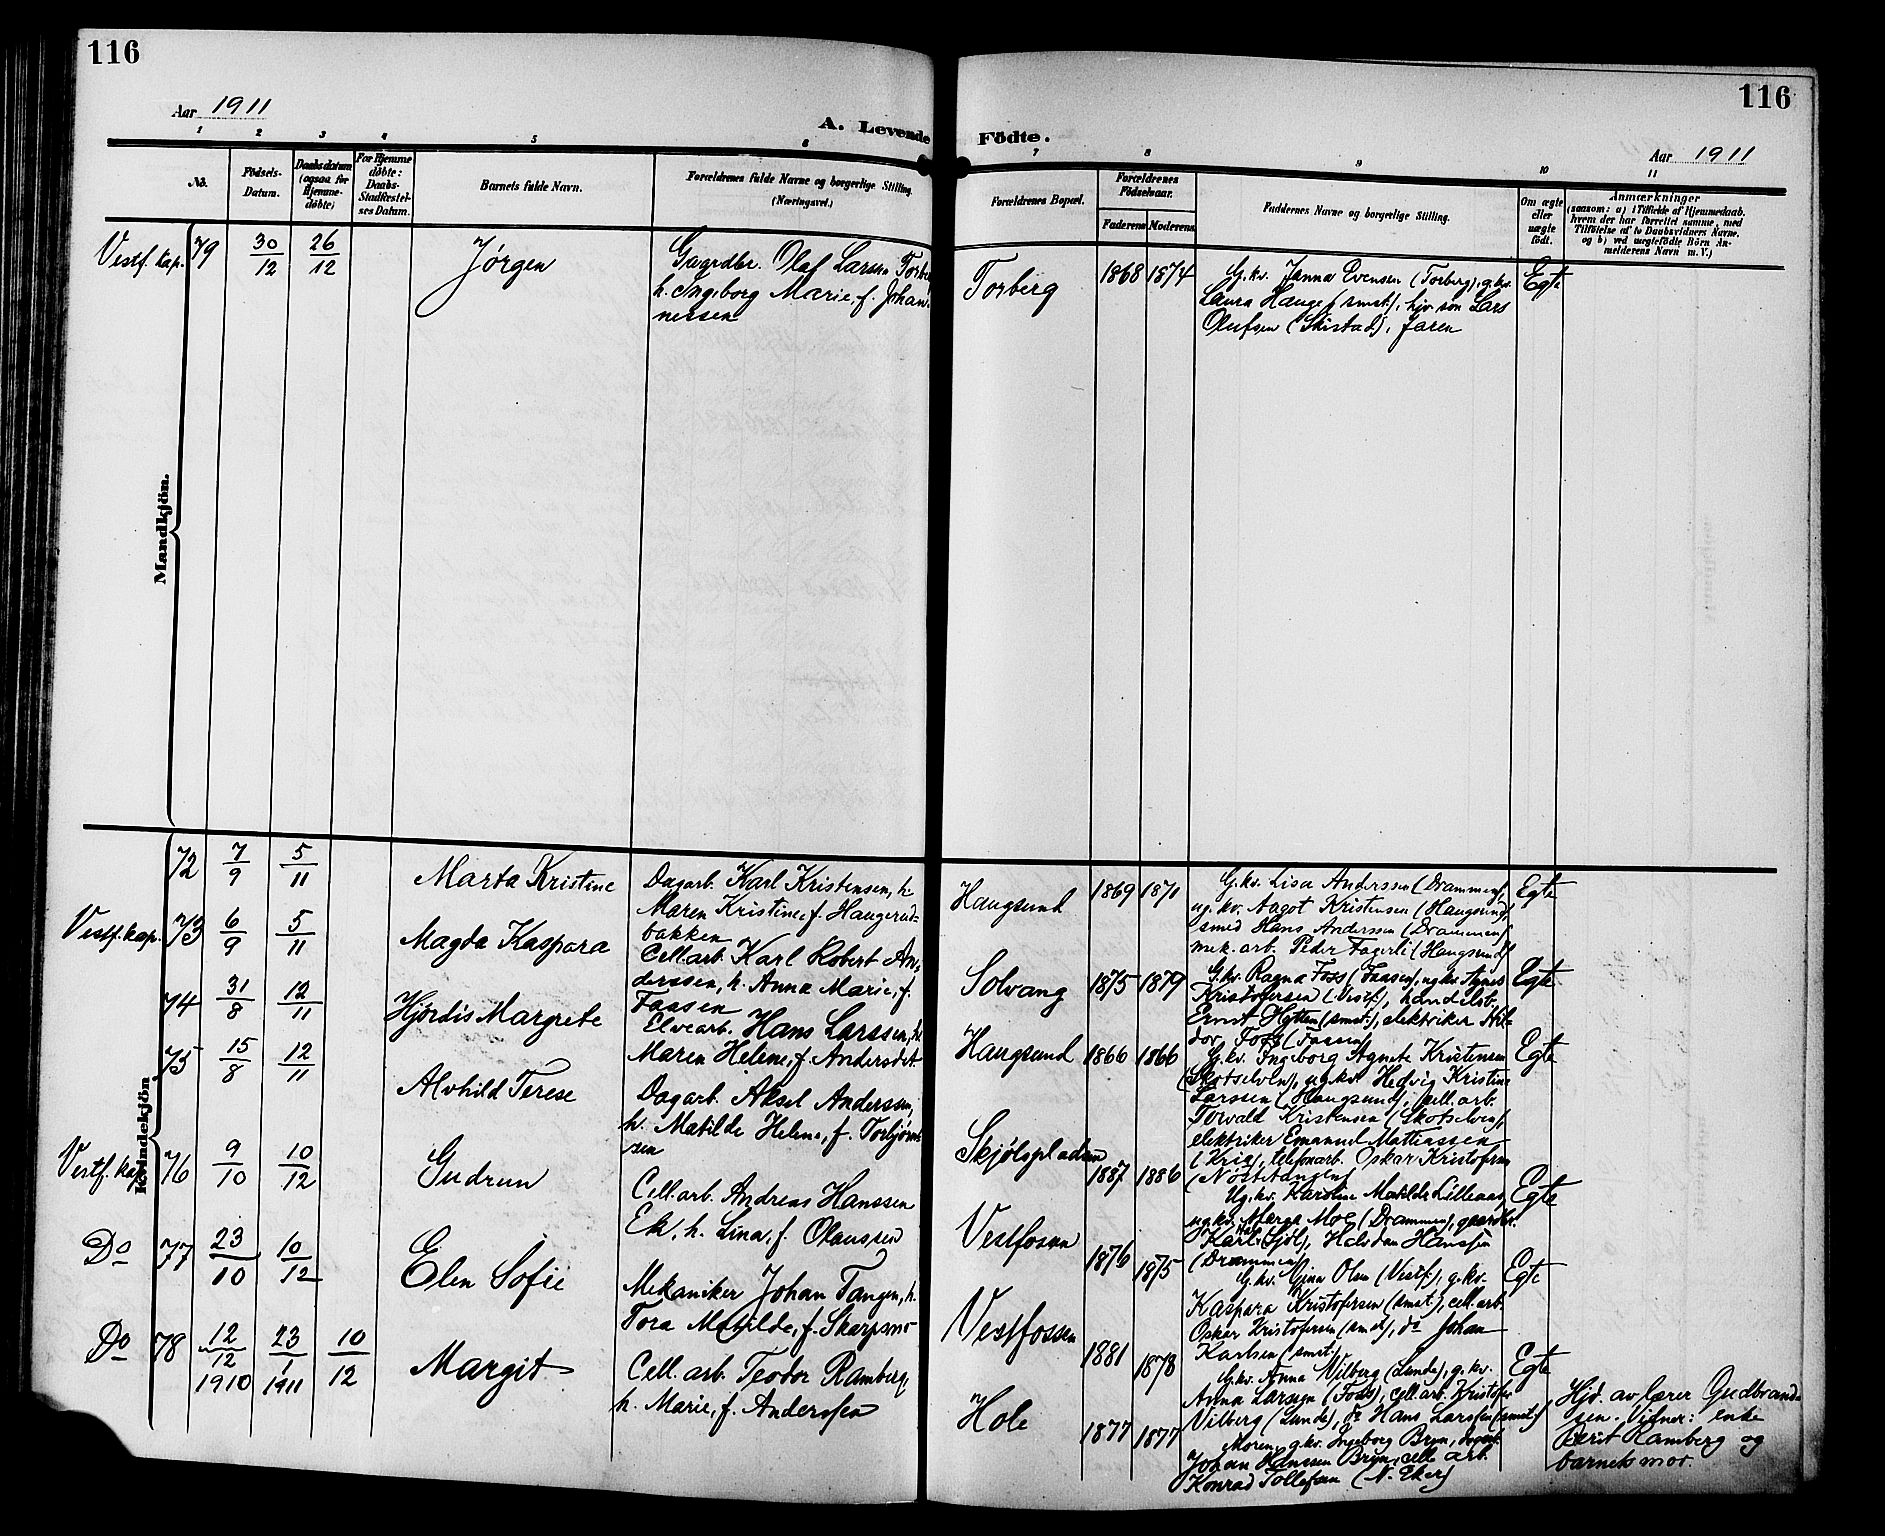 116
116
Aar 1911
A. Levende Födte.
Aar 1911
1 2 3 4 5 6 7 8 9 10 11
No.
Födsels-
Datum.
Daabsdatum
(ogsaa for
Hjemme-
döbte)
For Hjemme
döbte:
Daabs-
Stadfæstel-
ses Datum.
Barnets fulde Navn.
Forældrenes fulde Navne og borgerlige Stilling.
(Næringsvei.)
Forældrenes Bopæl.
Forældrenes
Födselsaar.
Faderens Moderens
Faddernes Navne og borgerlige Stilling.
Om ægte
eller
uægte
födt.
Anmærkninger
(saasom: a) i Tilfælde af Hjemmedaab,
hvem der har forrettet samme, med
Tilföielse af to Daabsvidners Navne,
og b) ved uægtefödte Börn An-
melderens Navn m. V.)
Mandkjön.
Vestf. kap. 79 30/12 26/12 Jørgen
Gaardbr. Olaf Larsen Torberg
h. Ingeborg Marie, f. Johan-
nessen
Torberg 1868 1874
G.kv. Janna Evensen (Torberg), g.kv.
Laura Hauge (smst.), hjv. søn Lars
Olufsen (Skistad), faren
Egte
Kvindekjön
72 7/9 5/11 Marta Kristine
Dagarb. Karl Kristensen, h.
Maren Kristine, f. Haugerud-
bakken
Haugsund 1869 1871
G.kv. Lisa Anderssen (Drammen),
ug. kv. Aagot Kristensen (Haugsund),
smed Hans Anderssen (Drammen),
mek. arb. Peder Fagerli (Haugsund)
Egte
Vestf. kap. 73 6/9 5/11 Magda Kaspara
Cell.arb. Karl Robert An-
derssen, h. Anna Marie, f.
Faasen
Solvang 1875 1879
G.kv. Ragna Foss (Faasen), ug.kv. Agnes
Kristofersen (Vestf.), handelsb.
Ernst Hytten (smst.), elektriker Hil-
dor Foss (Faasen)
Egte
74 31/8 12/11 Hjördis Margrete
Elvearb. Hans Larssen, h.
Maren Helene, f. Andersdet.
Haugsund 1866 1866
G.kv. Ingeborg Agnete Kristensen
(Skotselven), ug.kv. Hedvig Kristine
Larssen (Haugsund), cell.arb.
Torvald Kristensen (Skotselven),
elektriker Emanuel Mattiassen
(Kria), telefonarb. Oskar Kristofersen
(Nøstetangen)
Egte
75 15/8 12/11 Alvhild Terese
Dagarb. Aksel Anderssen,
h. Matilde Helene, f. Torbjørn-
sen
Skjølspladsen 1887 1886
Ug.kv. Karoline Matilde Lilleaas,
ug.kv. Marga Moe (Drammen), gaardbr.
Karl Sjöl, Halvdan Hanssen
(Drammen)
Egte
Vestf. kap. 76 9/10 10/12 Gudrun
Cell.arb. Andreas Hanssen
Ek, h. Lina, f. Olaussen
Vestfossen 1876 1875
G.kv. Gina Olsen (Vestf.), g.kv.
Kaspara Kristofersen (smst.), cell.arb.
Oskar Kristofersen (smst.), do Johan
Karlsen (smst.)
Egte
Do 77 23/10 10/12 Elen Sofie
Mekaniker Johan Tangen, h.
Tora Matilde, f. Skarpsmo
Vestfossen 1881 1878
G.kv. Anna Vilberg (Lunde), g.kv.
Anna Larssen (Foss), cell.arb. Kristofer
Vilberg (Lunde), do Hans Larssen (smst.)
Egte
Do 78 12/12 1910 23/1 1911 10/12 Margit
Cell.arb. Teodor Ramberg,
h. Marie, f. Anderssen
Hole 1877 1877
Moren, g.kv. Ingeborg Bryn, dagarb.
Johan Hanssen Bryn, cell. arb.
Konrad Tollefsen (N. Eker)
Hjd. av lærer Gudbrand-
sen. Vidner: enke
Berit Ramberg og
barnets mor.